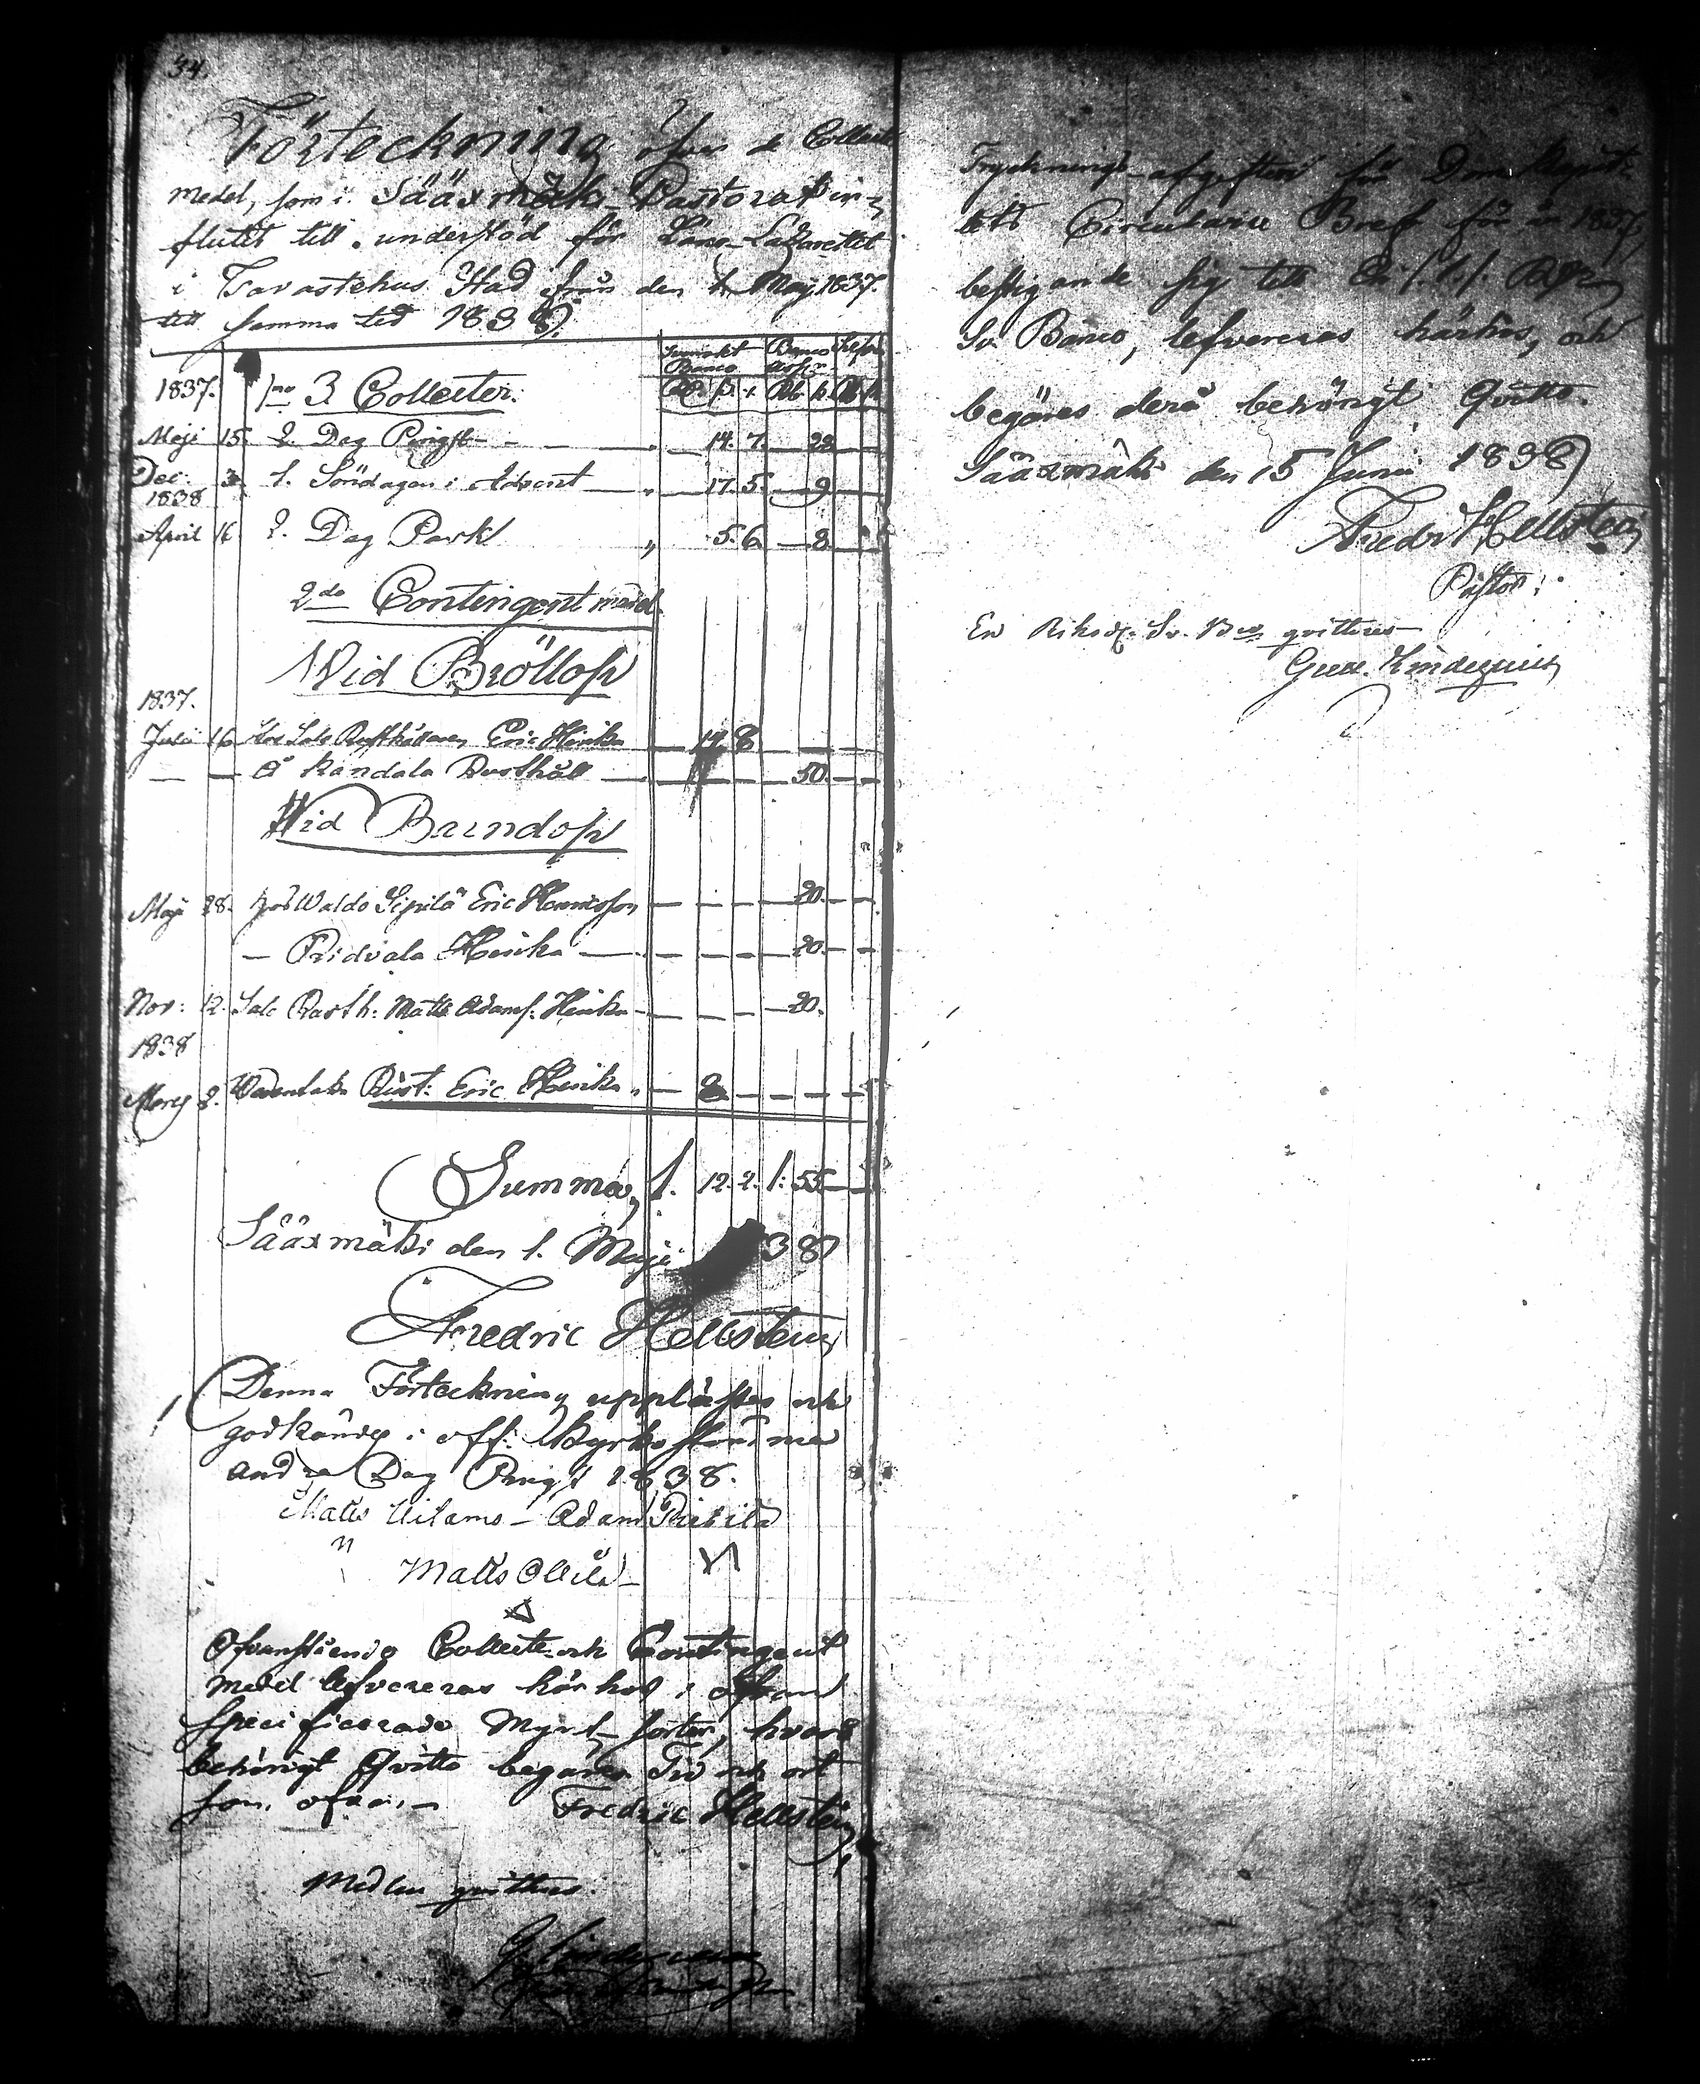 34.
Förteckning öfver de Collect
medel, som i Sääxmäki Pastorat in-
flutit till understöd för Läns-Lazarettet
i Tavastehus Stad från den 1. Maj 1837.
till samma tid 1838.
Svenskt Banco Banco Assgr
Rd. β. r. Rb. k. Rb. k.
1837. 1mo 3 Collecter.
Maji 15. 2. Dag Pingst — 14. 7. — 22
Dec. 3. 1. Söndagen i Advent — 17. 5. — 9
1838
April 16. 2. Dag Påsk „ 5. 6. — 8
2do Contingent medel
Wid Bröllop
1837.
Julii 16 Hos Sale Rusthållaren Eric Heicka — 14 8
— — Å Kandala Rusthåll — 50
Wid Barndop
Maji 28. hos Waldo Sipilä Eric Henricsson — 20
— Ridvala Heicka — 20
Nov: 12. Sale Rusth: Matts Adamss. Heicka — 20.
1838
Martj 2. Rust: Eric Heicka
Summa, 1. 12. 2. 1. 55
Sääxmäki den 1. Maji 38
Fredric Hellsten
Denna Förteckning upplästes och
godkändes i off: kyrkostämma
andra Dag Pingst 1838.
Matts Uilamo — Adam
Matts Ollila
Ofvanstående Collecte och Contingent
medel lefvereras härhos i ofvan
specificerade Mynt-sorter, hvarå
behörigt Qvitto begäres Tid och ort
som ofvan. —
Fredric Hellsten
Medlen qvitteras.
Trycknings-afgiften för Dom Capit-
lets Circulaire Bref för år 1837,
bestigande sig till En (:1:) Rdr
Sv. Banco, lefvereras härhos, och
begäres derå behörigt Qvitto.
Sääxmäki den 15 Junii 1838
Fredr Hellsten
Pastor:
En Riksd. Sv. Bco qvitteras
Gust. Lindequist